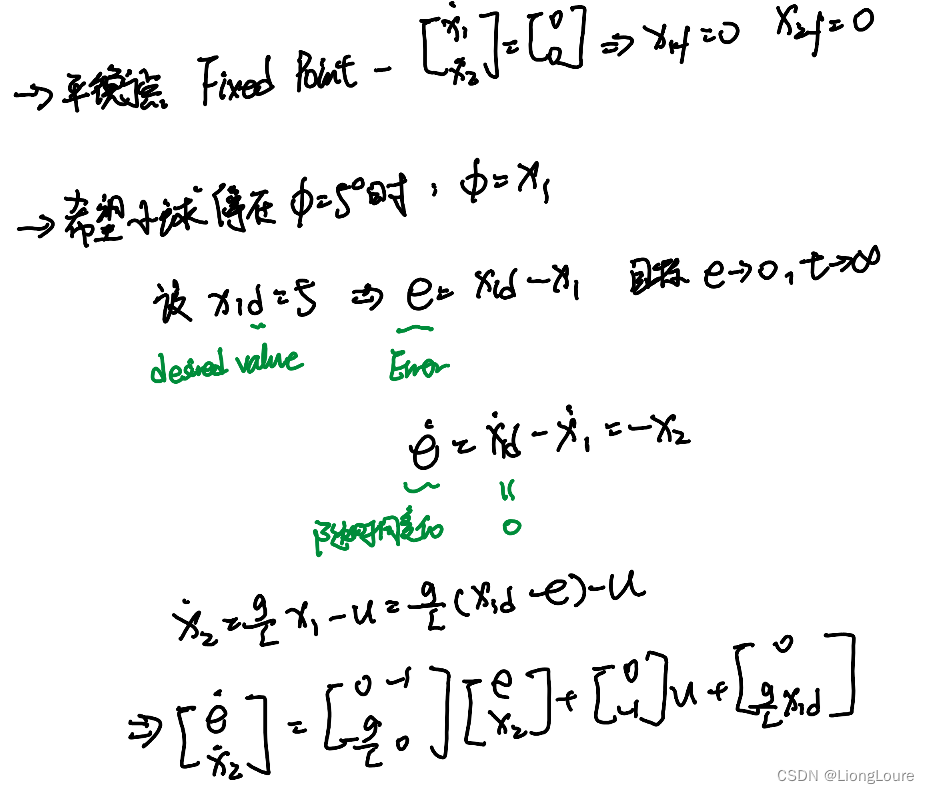 → 平衡点 Fixed Point - [ẋ₁ ẋ₂] = [0 0] ⇒ x₁f = 0 x₂f = 0
→ 希望小球停在 φ=5°时, φ=x₁
设 x₁d = 5 ⇒ e = x₁d - x₁ 目标 e→0, t→∞
desired value Error
ė = ẋ₁d - ẋ₁ = -x₂
0
ẋ₂ = g/L x₁ - u = g/L (x₁d - e) - u
⇒ [ė ẋ₂] = [0 -1 -g/L 0] [e x₂] + [0 -1] u + [0 g/L x₁d]
CSDN @LiongLoure